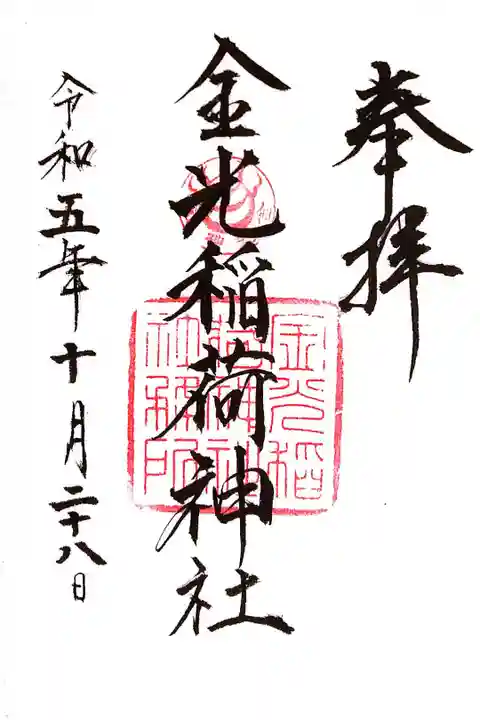 奉拝
金光稲荷神社
令和五年十月二十八日
金光稲荷神社社務所